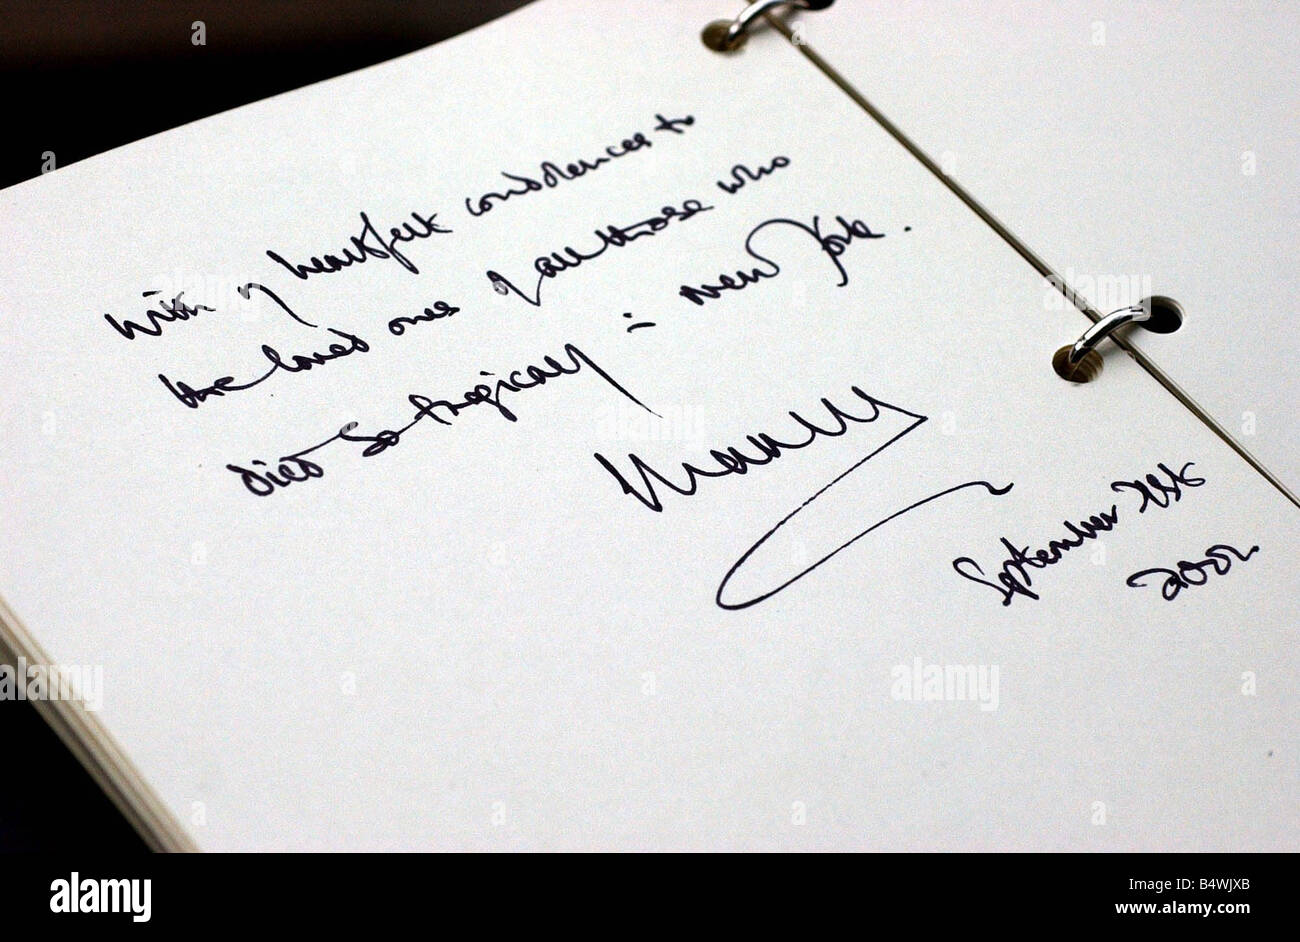 With my heartfelt condolences to
the loved ones of all those who
died so tragically in New York.
September 21st
2002
alamy
a
alamy
Image ID: B4WJXB
www.alamy.com